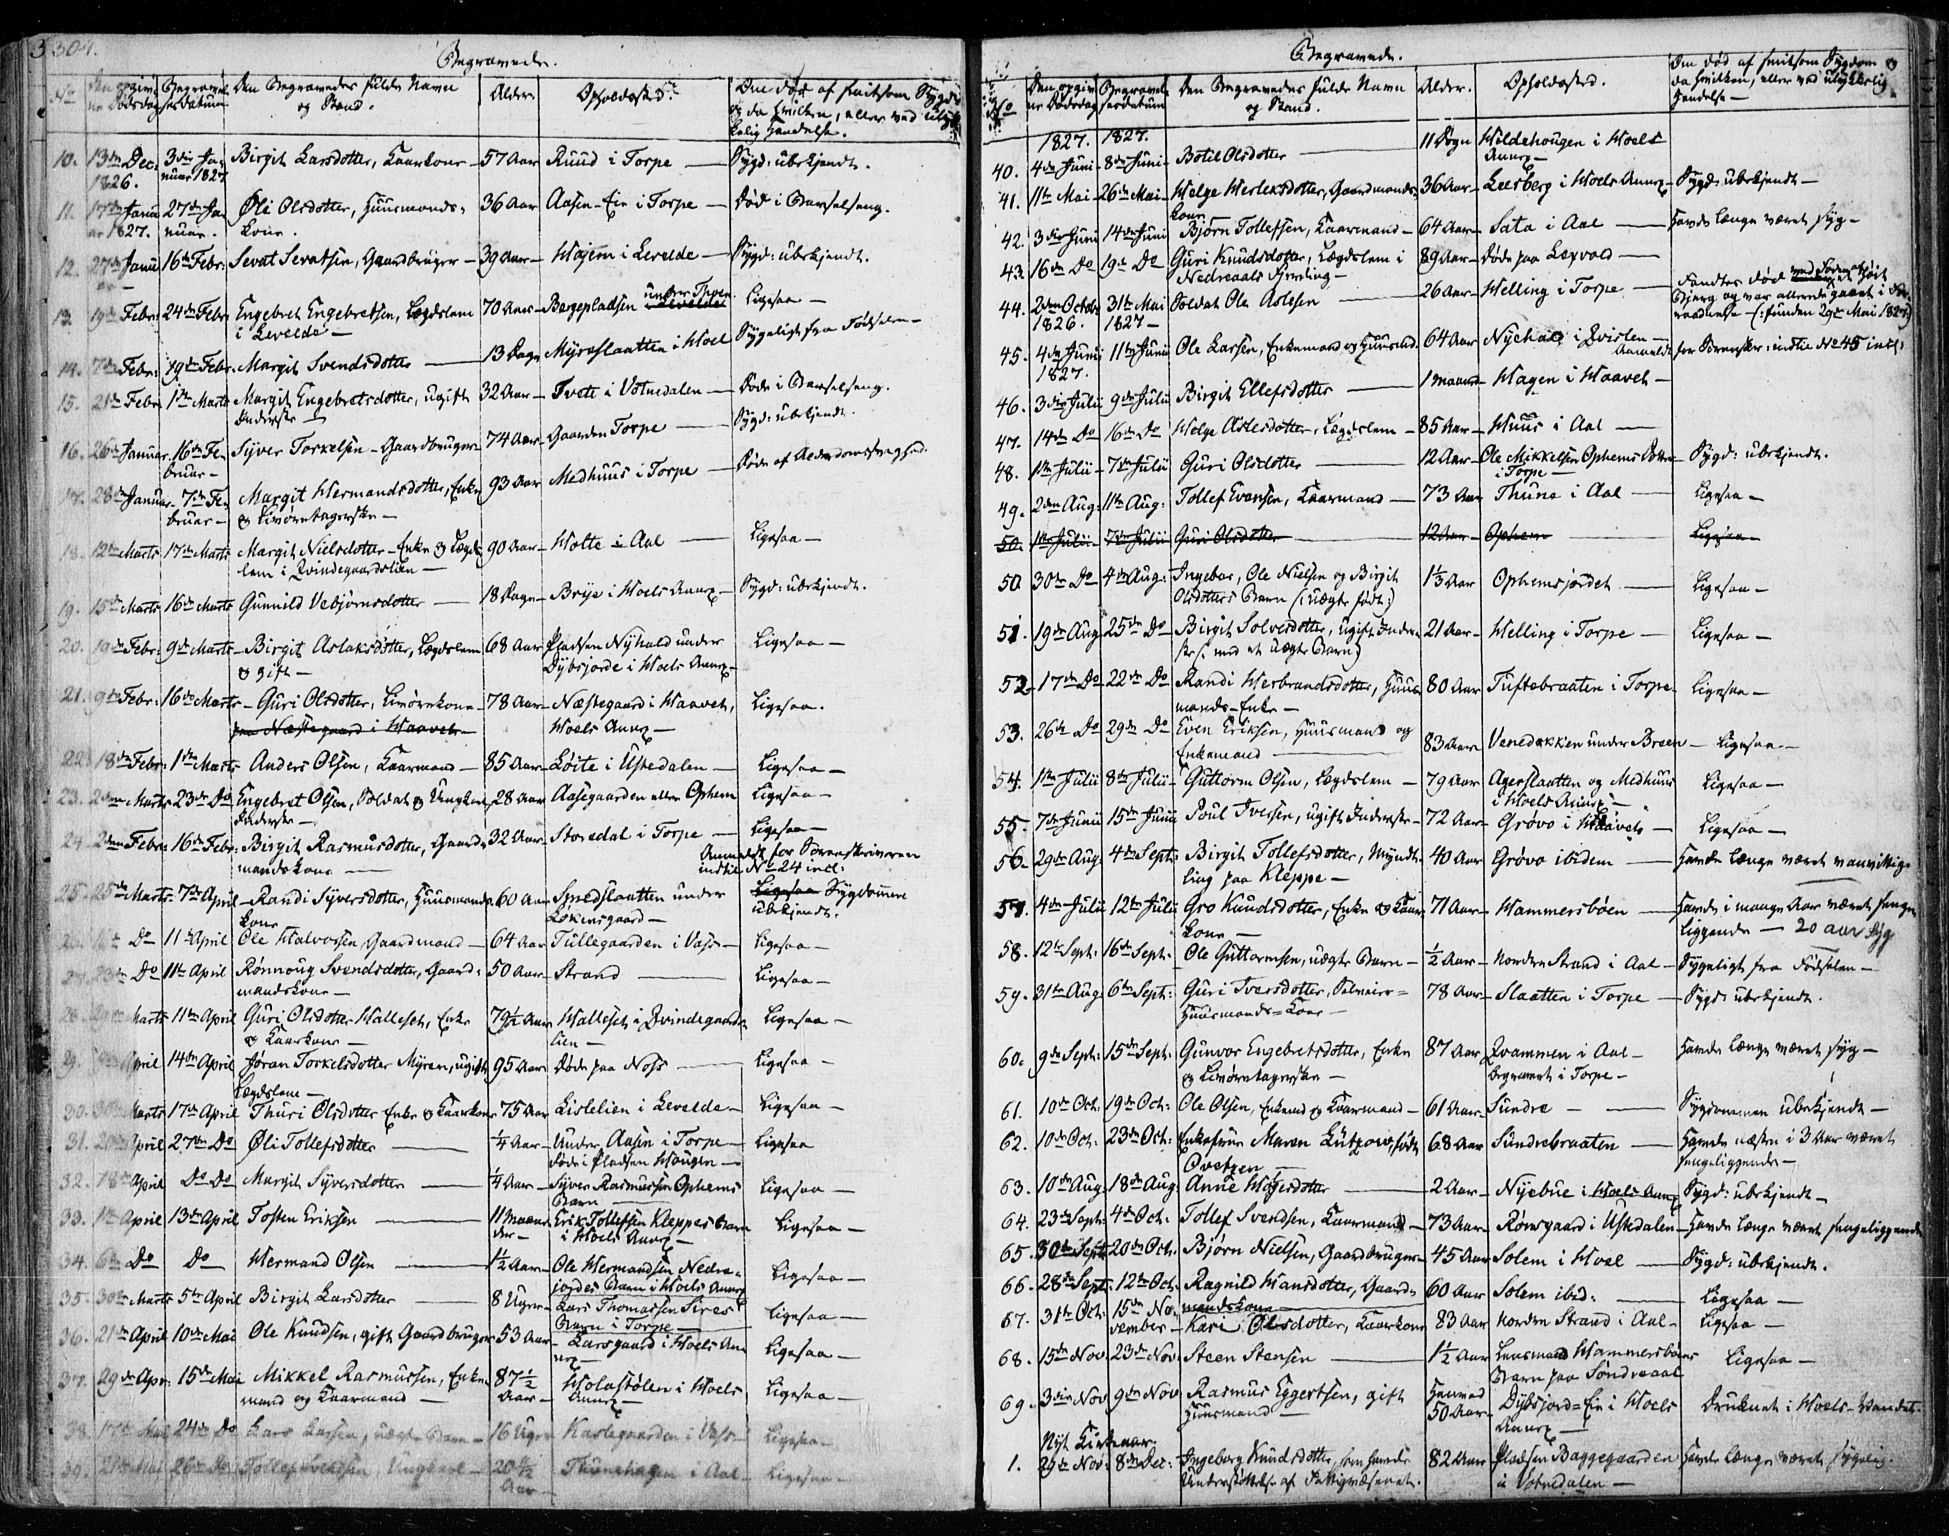 304.
Begravede.
No
Den opgivne Dødsdag
Begravelsesdatum
Den Begravedes fulde Navn og Stand.
Alder.
Opholdssted.
Om død af smitsom Sygdom og da hvilken, eller ved ulykkelig Hændelse.
10. 13de Dec: 1826. 3die Januar 1827 Birgit Larsdotter, Kaarkone 57 Aar Ruud i Torpe Sygd: ubekjendt.
11. 17de Januar 1827. 27de Januar. Øli Olsdotter, Huusmands-kone. 36 Aar Aasen-Eie i Torpe Død i Barselseng.
12. 27de Januar 16de Febr: Sevat Sevatsen, Gaardbruger 39 Aar Hagem i Levelde Sygd: ubekjendt.
13. 19de Febr: 24de Febr. Engebret Engebretsen, Lægdslem i Levelde 70 Aar Bergepladsen Ligesaa
14. 7de Febr: 19de Febr. Margit Svendsdotter 13 Dage Myreslaatten i Hoel Sygeligt fra Fødselen
15. 21de Febr 1ste Marts Margit Engebretsdotter, ugift Inderste 32 Aar Tvett i Votnedalen Døde i Barselseng.
16. 26de Januar 16de Februar Syver Torkelsen Gaardbruger 74 Aar Gaarden Torpe Sygd: ubekjendt.
17. 28de Januar 7de Februar Margit Hermandsdotter, Enke og Livøretagerske 93 Aar Medhuus i Torpe Døde af Alderdomssvaghed.
18. 12te Marts 17de Marts Margit Nielsdotter Enke og Lægdslem i Qvindegaardslien 90 Aar Holte i Aal Ligesaa
19. 15de Marts 16de Marts Gunnild Vebjørnsdotter 18 Dage Brye i Hoels Annex Sygd: ubekjendt.
20. 19de Febr: 9de Marts Birgit Aslaksdotter, Lægdslem og gift 68 Aar Pladsen Nyhald under Dybsjorde i Hoels Annex Ligesaa
21. 9de Febr: 16de Marts Guri Olsdotter, Livørekone 78 Aar Næstegaard i Haavet, Hoels Annex Ligesaa.
22. 18de Febr: 1ste Marts Anders Olsen, Kaarmand 85 Aar Løite i Ustedalen Ligesaa
23. 2den Marts 23de Do Engebret Olsen, Soldat og Ungkarl, Inderste 28 Aar Aasegaarden eller Ophem Ligesaa
24. 2den Febr: 16de Febr: Birgit Rasmusdotter, Gaardmandskone 32 Aar Storedal i Torpe Ligesaa
Anmeldt for Sorenskriveren indtil No 24 incl:
25. 25de Marts 7de April Randi Syversdotter, Huusmands-kone 60 Aar Smedslaatten under Lokensgaard Ligesaa Sygdommen ubekjendt.
Do 11te April Ole Halvorsen, Gaardmand 64 Aar Tullegaarden i Vats Ligesaa
23de Do 11te April Rønnoug Svendsdotter, Gaardmandskone 50 Aar Strand Ligesaa
28. Marts 11te April Guri Olsdotter Halleset, Enke og Kaarkone 79½ Aar Halleset i Qvindegaardslien Ligesaa
29. April 14de April Jøran Torkelsdotter Myren, ugift Lægdslem 95 Aar Døde paa Noss Ligesaa
30. Marts 17de April Thuri Olsdotter Enke og Kaarkone 75 Aar Lislelien i Levelde Ligesaa
31. April 27de Do Øli Tollefsdotter ¼ Aar Under Aasen i Torpe Døde i Pladsen Haugen Ligesaa
32. 18de April Do Do Margit Syversdotter ¼ Aar Syver Rasmussen Ophems Barn Ligesaa
33. 1ste April 13de April Tosten Eriksen 11 Maaneder Erik Tollefsen Kleppes Barn i Hoels Annex Ligesaa
34. 6te Do Do Hermand Olsen 1½ Aar Ole Hermandsen Nedrejordes Barn i Hoels Annex Ligesaa
35. 30te Marts 5te April Birgit Larsdotter 8 Uger Lars Thomassen Sires Barn i Torpe Ligesaa
36. 21de April 10de Mai Ole Knudsen, gift Gaardbruger 53 Aar Larsgaard i Hoels Annex Ligesaa
37. 29de Apr: 15de Mai Mikkel Rasmussen, Enkemand og Kaarmand 87½ Aar Holastølen i Hoels Annex Ligesaa
38. 17de Mai 24de Do Lars Larsen, uægte Barn 16 Uger Kaslegaarden i Vats Ligesaa
39. 21de Mai 26de Do Tollef Svendsen, Ungkarl 20 Aar Thunehagen i Aal Ligesaa
Begravede.
No
Den opgivne Dødsdag
Begravelsesdatum
Den Begravedes fulde Navn og Stand.
Alder.
Opholdssted.
Om død af smitsom Sygdom og da hvilken, eller ved ulykkelig Hændelse
1827. 1827.
40. 4de Juni 8de Juni Botil Olsdotter 11 Døgn Hildehougen i Hoels Annex
41. 11te Mai 26de Mai Helge Herleksdotter, Gaardmandskone 36 Aar Leesberg i Hoels Annex Sygd: ubekjendt
42. 3die Juni 14de Juni Bjørn Tollefsen, Kaarmand 64 Aar Sata i Aal Havde længe været syg
43. 16de Do 19de Do Guri Knudsdotter, Lægdslem i Nedreaals Fjerding 89 Aar Døde paa Lexvold
44. 2den October 1826. 31te Mai 1827 Soldat Ole Aslesen 26 Aar Helling i Torpe Fandtes død Bjerg og var allerede gaaet i Forraadnelse (: funden 29de Mai 1827:)
45. 4de Junii 1827. 11te Junii Ole Larsen, Enkemand og Huusmd. 64 Aar Nyhald i Qvislen Anmeldt for Sorenskr: indtil No 45 incl:
46. 3die Julii 9de Julii Birgit Ellefsdotter 1 Maaned Hagen i Haavet
47. 14de Do 16de Do Helge Aslesdotter, Lægdslem 85 Aar Huus i Aal
48. 1ste Julii 7de Julii Guri Olsdotter 12 Aar Ole Mikkelsen Ophems Dotter i Torpe Sygd: ubekjendt.
49. 2den Aug: 11te Aug: Tollef Evensen, Kaarmand 73 Aar Thune i Aal Ligesaa
50. 1ste Julii 7de Julii Guri Olsdotter 12 Aar Ophem Ligesaa
50. 30te Do 4de Aug: Ingebor, Ole Nielsen og Birgit Olsdotters Barn (: uægte født:) 1⅓ Aar Ophemsjordet Ligesaa
51. 19de Aug 25de Do Birgit Solversdotter, ugift Inderste (: med et uægte Barn) 21 Aar Helling i Torpe Ligesaa
52. 17de Do 22de Do Randi Herbrandsdotter, Huusmands-Enke 80 Aar Tuftebraaten i Torpe Ligesaa
53. 26de Do 29de Do Even Eriksen, Huusmand og Enkemand 83 Aar Venebakken under Breen Ligesaa
54. 1ste Julii 8de Julii Guttorm Olsen, Lægdslem 79 Aar Agerslaatten og Medhuus i Hoels Annex Ligesaa
55. 7de Junii 15de Junii Poul Iversen, ugift Inderste 72 Aar Grøvo i Haavet Ligesaa
56. 29de Aug 4de Sept: Birgit Tollefsdotter, Myndtling paa Kleppe 40 Aar Grøvo ibidem Havde længe været vanvittig
57. 4de Julii 12te Julii Gro Knudsdotter, Enke og Kaarkone 71 Aar Hammersbøen Havde i mange Aar været sengeliggende 20 aar syg
58. 12te Sept: 16de Sept: Ole Guttormsen, uægte Barn ½ Aar Norden Strand i Aal Sygeligt fra Fødselen
59. 31te Aug 6te Sept: Guri Iversdotter, Huusmands-Kone 78 Aar Slaatten i Torpe Sygd: ubekjendt.
60. 9de Sept: 15de Sept: Gunvor Engebretsdotter, Enke og Livøretagerske 87 Aar Qvammen i Aal begravet i Torpe Havde længe været syg
61. 10de Oct: 19de Oct: Ole Olsen, Enkemd og Kaarmand 61 Aar Sundre Sygdommen ubekjendt
62. 10de Oct: 23de Oct: Enkefrue Maren Lützow, født Ovetzen 68 Aar Sundrebraaten Havde næsten i 3 Aar været sengeliggende
63. 10de Aug 18de Aug Anne Holgersdotter 2 Aar Nyebue i Hoels Annex Sygd: ubekjendt
64. 23de Sept: 4de Oct: Tollef Svendsen, Kaarmand 73 Aar Rømsgaard i Ustedalen Havde længe været sengeliggende
65. 30te Sept 20de Oct: Bjørn Nielsen, Gaardbruger 45 Aar Solem i Hoel Sygd: ubekjendt.
66. 28de Sept: 12te Oct: Ragnild Hansdotter, Gaardmandskone 60 Aar Solem ibid: Ligesaa
67. 31te Oct: 15de November Kari Olsdotter, Kaarkone 83 Aar Norden Strand i Aal Ligesaa
68. 15de Nov 23de Nov: Steen Stensen 1½ Aar Lensmand Hammersbøens Barn paa Sondreaal Ligesaa
69. 3die Nov 9de Nov Rasmus Eggertsen, gift Huusmand 50 Aar Dybsjord-Eie i Hoels Annex Druknet i Hoels-Vandet.
Nyt Kirkeaar.
1. 29de Nov: 8de Dec: Ingeborg Knudsdotter, som havde Understøttelse af Fattigvæsenet. 82 Aar Pladsen Baggegaarden i Votnedalen Havde længe været sygelig.